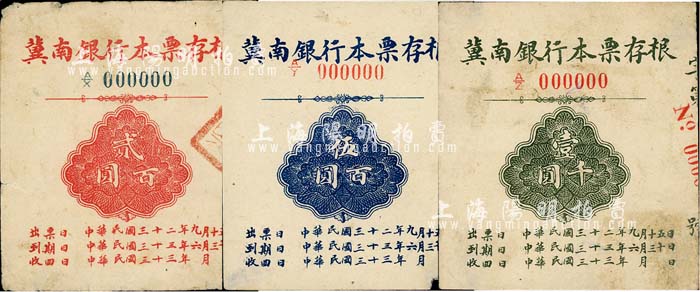 冀南銀行本票存根
A/X 000000
貳百圓
出票日 中華民國三十二年九月十五
到期日 中華民國三十三年六月三
收回日 中華民國三十 年 月
冀南銀行本票存根
A/Y 000000
伍百圓
出票日 中華民國三十二年九月十
到期日 中華民國三十三年六月三
收回日 中華民國三十 年 月
冀南銀行本票存根
A/Z 000000
壹千圓
出票日 中華民國三十二年九月十五日
到期日 中華民國三十三年六月三十日
收回日 中華民國三十 年 月 日
上海陽明拍賣
www.yangmingauction.com
上海陽明拍賣
www.yangmingauction.com
上海陽明拍賣
www.yangmingauction.com